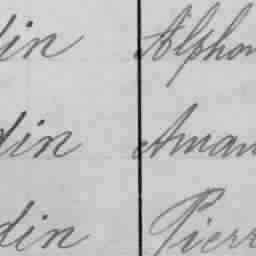 din Alphon
din Aman
din Pierr